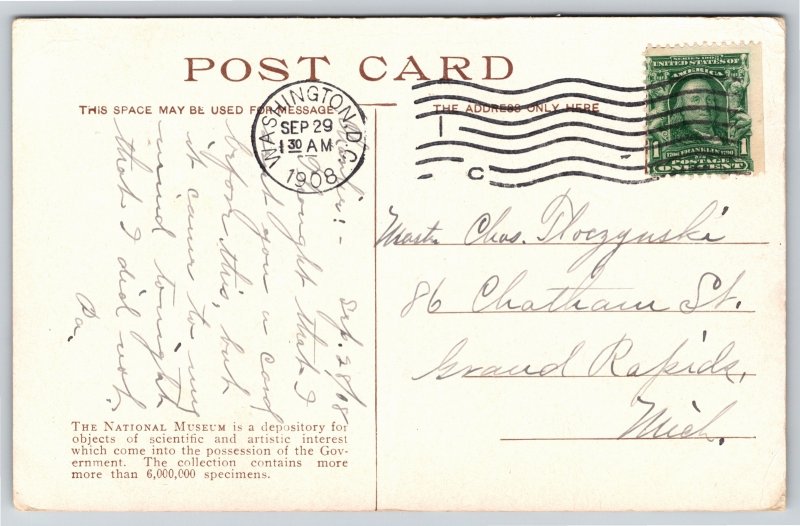 POST CARD
THIS SPACE MAY BE USED FOR MESSAGE
THE ADDRESS ONLY HERE
WASHINGTON, D.C.
SEP 29
1 30 AM
1908
1
C
SERIES 1902
UNITED STATES OF
AMERICA
1706 FRANKLIN 1790
1 POSTAGE
ONE CENT
Sep. 28/08
thought that I
sent you a card
before this, but
it came to my
mind tonight
that I did not.
Pa.
Mastr. Chas. Ploczynski
86 Chatham St.
Grand Rapids,
Mich.
THE NATIONAL MUSEUM is a depository for
objects of scientific and artistic interest
which come into the possession of the Gov-
ernment. The collection contains more
more than 6,000,000 specimens.